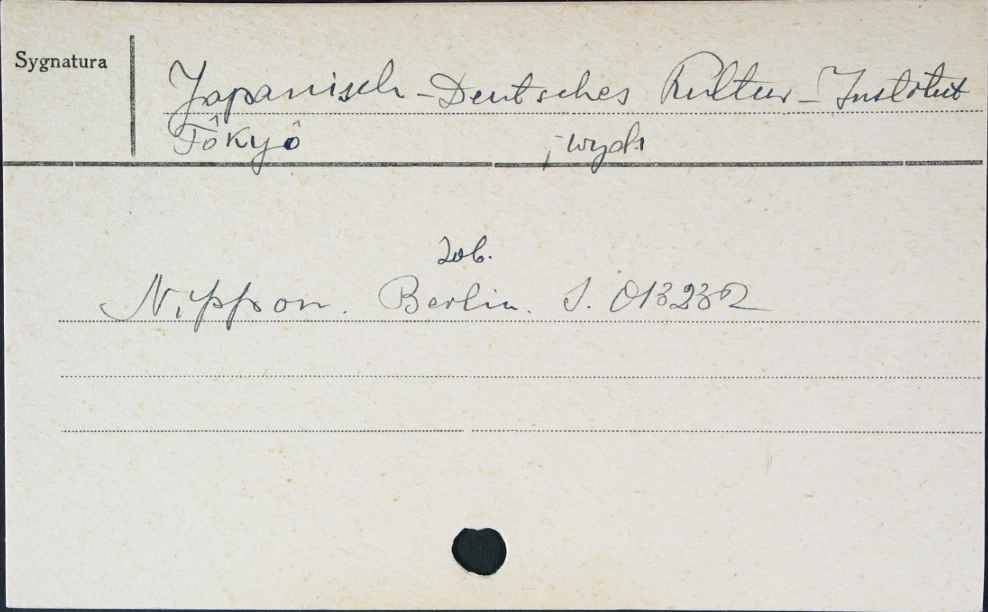 Sygnatura
Japanisch-Deutsches Kultur-Institut
Tôkyô ; wyd.
Zob.
Nippon. Berlin. S. 013232